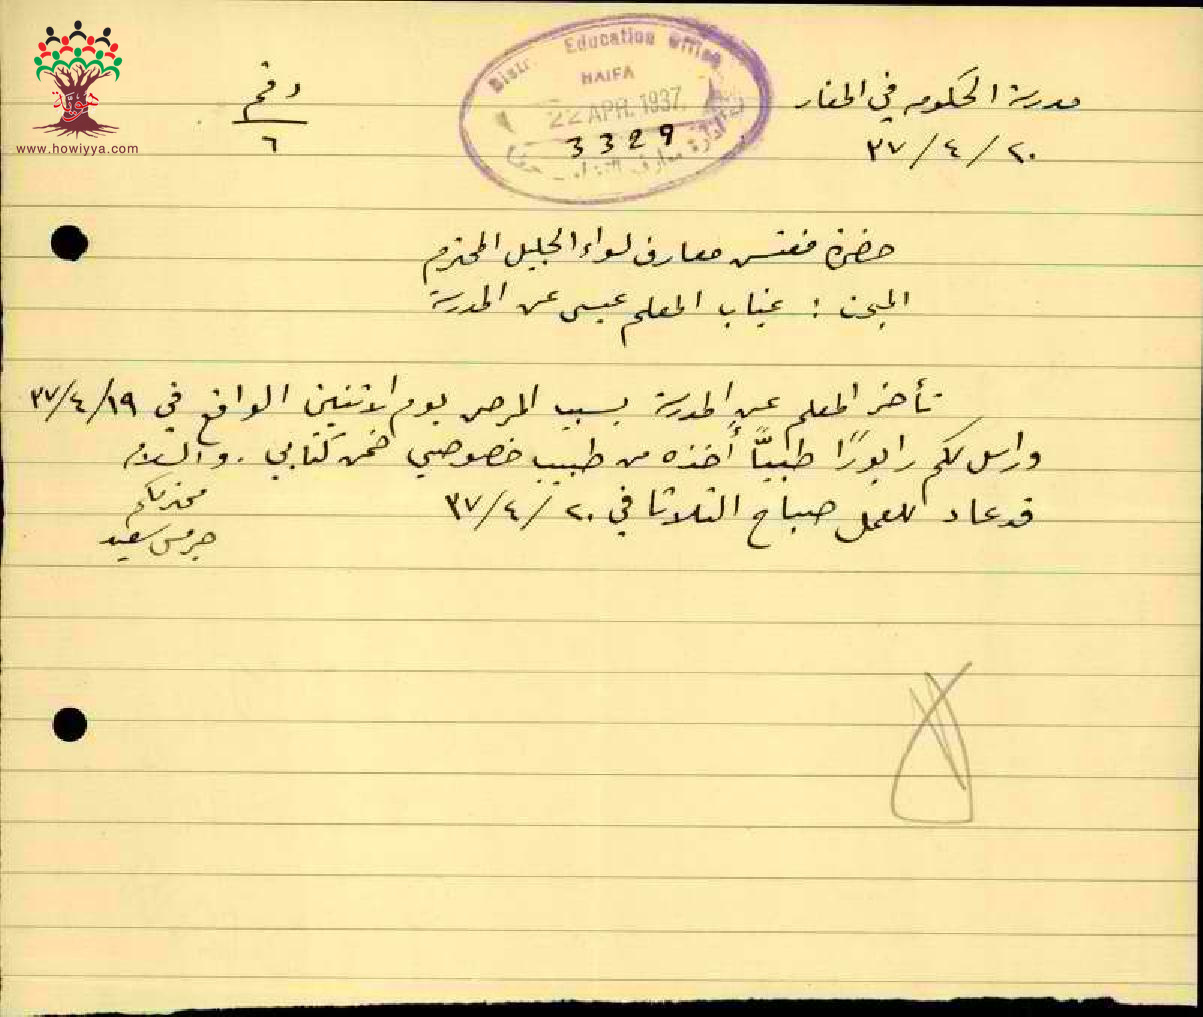 مدرسة الحكومه في المغار
٢٠/٤/٣٧
رقم
٦
Distr. Education Office
HAIFA
22 APR. 1937.
3329
www.howiyya.com
حضرة مفتش معارف لواء الجليل المحترم
المبحث : غياب المعلم عيسى عن المدرسة
تأخر المعلم عن المدرسة بسبب المرض يوم الاثنين الواقع في ١٩/٤/٣٧
وارسل لكم رابورًا طبيًّا أخذه من طبيب خصوصي ضمن كتابي . والسلام
قد عاد للعمل صباح الثلاثا في ٢٠/٤/٣٧
محترمكم
جرمس سعيد